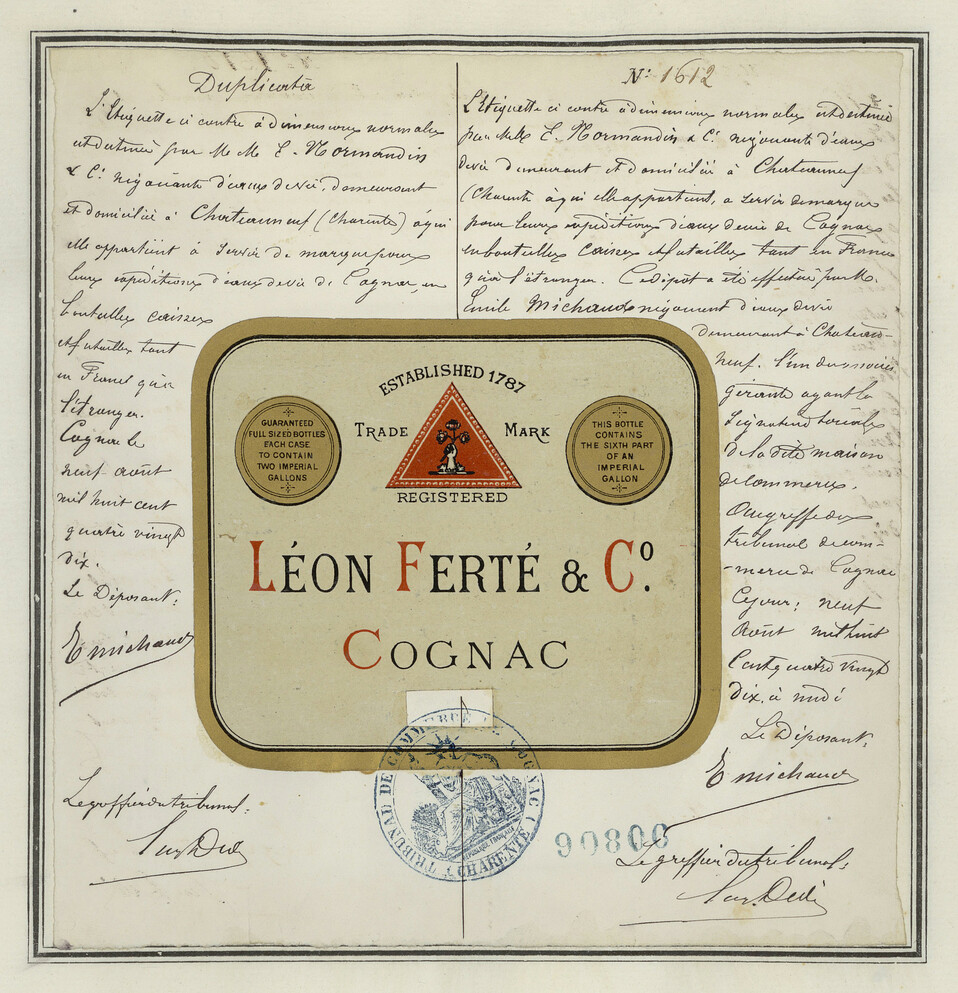 Duplicata
L'Etiquette ci contre à dimensions normales
est destinée par M. M. E. Normandin
& Cie. négociants d'eaux de vie, demeurant
et domiciliés à Chateauneuf (Charente) à qui
elle appartient à servir de marque pour
leurs expéditions d'eaux de vie de Cognac, en
bouteilles caisses
et futailles tant
en France qu'à
l'étranger.
Cognac le
neuf août
mil huit cent
quatre vingt
dix.
Le Déposant:
E Michaud
Le greffier du tribunal:
No: 1612
L'Etiquette ci contre à dimensions normales est destinée
par MM. E. Normandin & Cie. négociants d'eaux
de vie demeurant et domiciliés à Chateauneuf
(Charente à qui elle appartient, a servir de marque
pour leurs expéditions d'eaux de vie de Cognac
en bouteilles caisses et futailles tant en France
qu'à l'étranger. Ce dépôt a été effectué par M.
Emile Michaud négociant d'eaux de vie
demeurant à Chateau-
neuf. l'un des associés
gérants ayant la
signature sociale
de la dite maison
de commerce.
Au greffe du
tribunal de com-
-merce de Cognac
Ce jour; neuf
Août mil huit
Cent quatre vingt
dix. à midi
Le Déposant:
E Michaud
Le greffier du tribunal:
ESTABLISHED 1787
TRADE MARK
REGISTERED
GUARANTEED
FULL SIZED BOTTLES
EACH CASE
TO CONTAIN
TWO IMPERIAL
GALLONS
THIS BOTTLE
CONTAINS
THE SIXTH PART
OF AN
IMPERIAL
GALLON
LÉON FERTÉ & Co.
COGNAC
TRIBUNAL DE COMMERCE DE COGNAC (CHARENTE)
REPUBLIQUE FRANÇAISE
90800